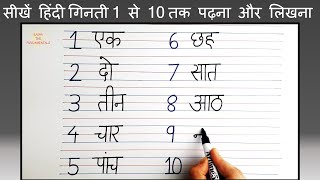 सीखें हिंदी गिनती 1 से 10 तक पढ़ना और लिखना
1 एक 6 छह
2 दो 7 सात
3 तीन 8 आठ
4 चार 9 न
5 पांच 10